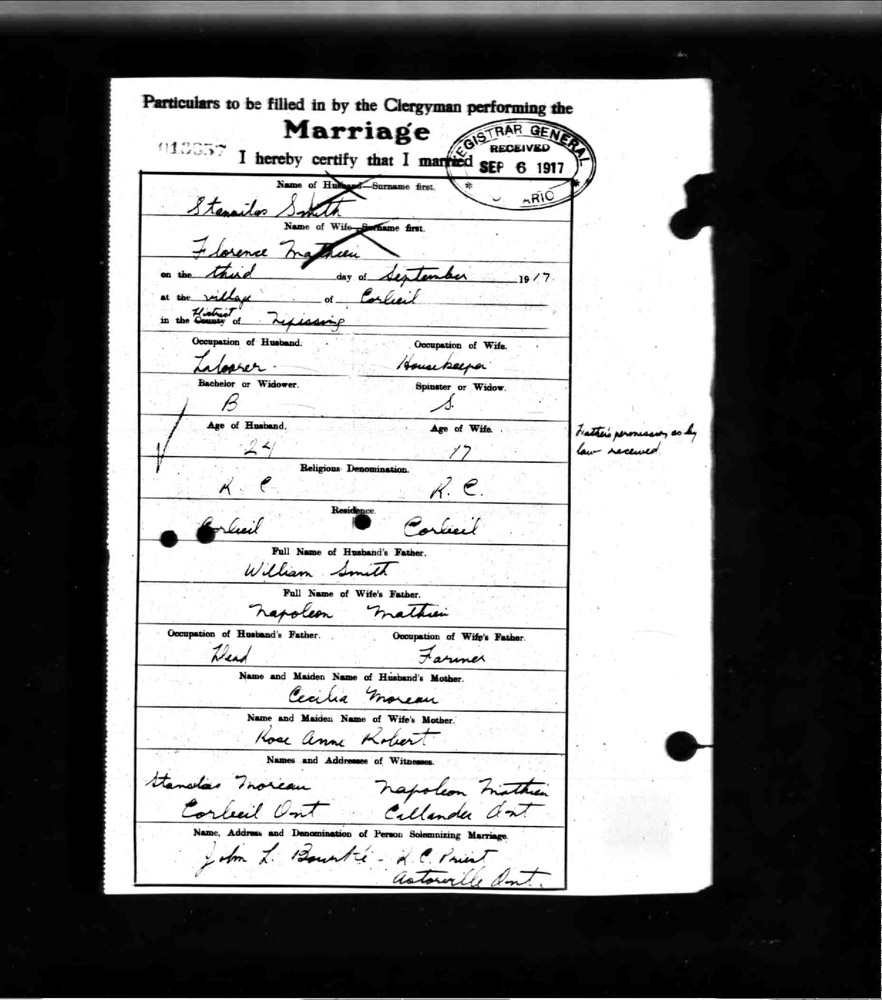 Particulars to be filled in by the Clergyman performing the
Marriage
013357
REGISTRAR GENERAL
RECEIVED
SEP 6 1917
ARIO
I hereby certify that I married
Name of Husband—Surname first.
Stanislas Smith
Name of Wife—Surname first.
Florence Mathieu
on the third day of September 1917.
at the village of Corbeil
District
in the County of Nipissing
Occupation of Husband. Occupation of Wife.
Laborer. Housekeeper
Bachelor or Widower. Spinster or Widow.
B S.
Age of Husband. Age of Wife.
24 17
Father's permission as by
law received.
Religious Denomination.
R. C. R. C.
Residence.
Corbeil Corbeil
Full Name of Husband's Father.
William Smith
Full Name of Wife's Father.
Napoleon Mathieu
Occupation of Husband's Father. Occupation of Wife's Father.
Dead Farmer
Name and Maiden Name of Husband's Mother.
Cecilia Moreau
Name and Maiden Name of Wife's Mother.
Rose Anne Robert
Names and Addresses of Witnesses.
Stanislas Moreau Napoleon Mathieu
Corbeil Ont Callander Ont.
Name, Address and Denomination of Person Solemnizing Marriage.
John L. Bourke - R. C. Priest
Astorville Ont.